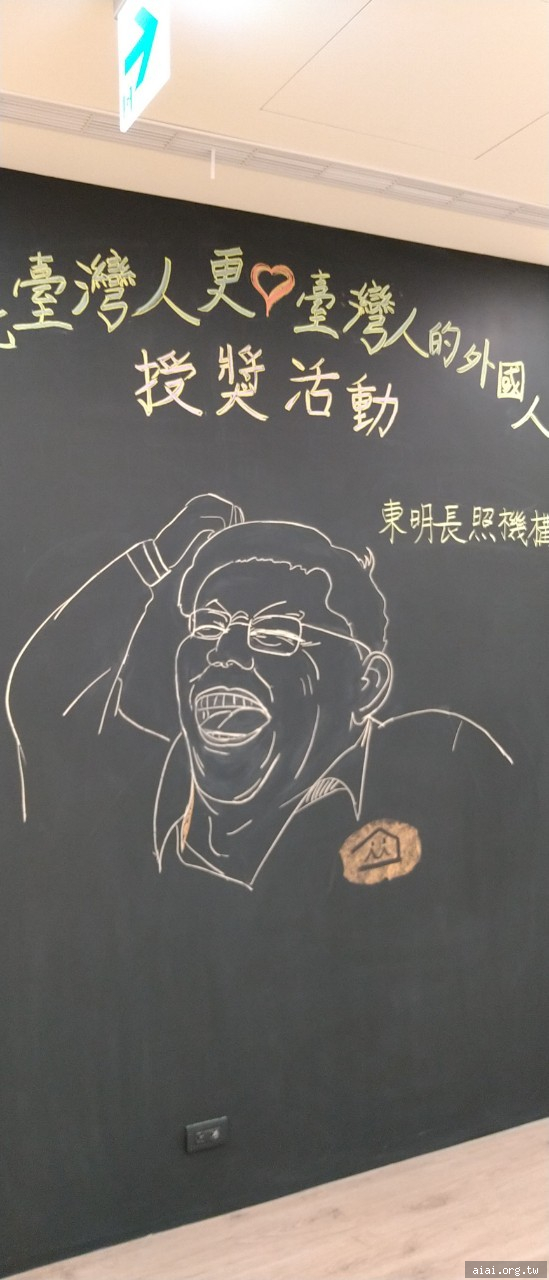 臺灣人更♡臺灣人的外國人
授獎活動
東明長照機構
aiai.org.tw